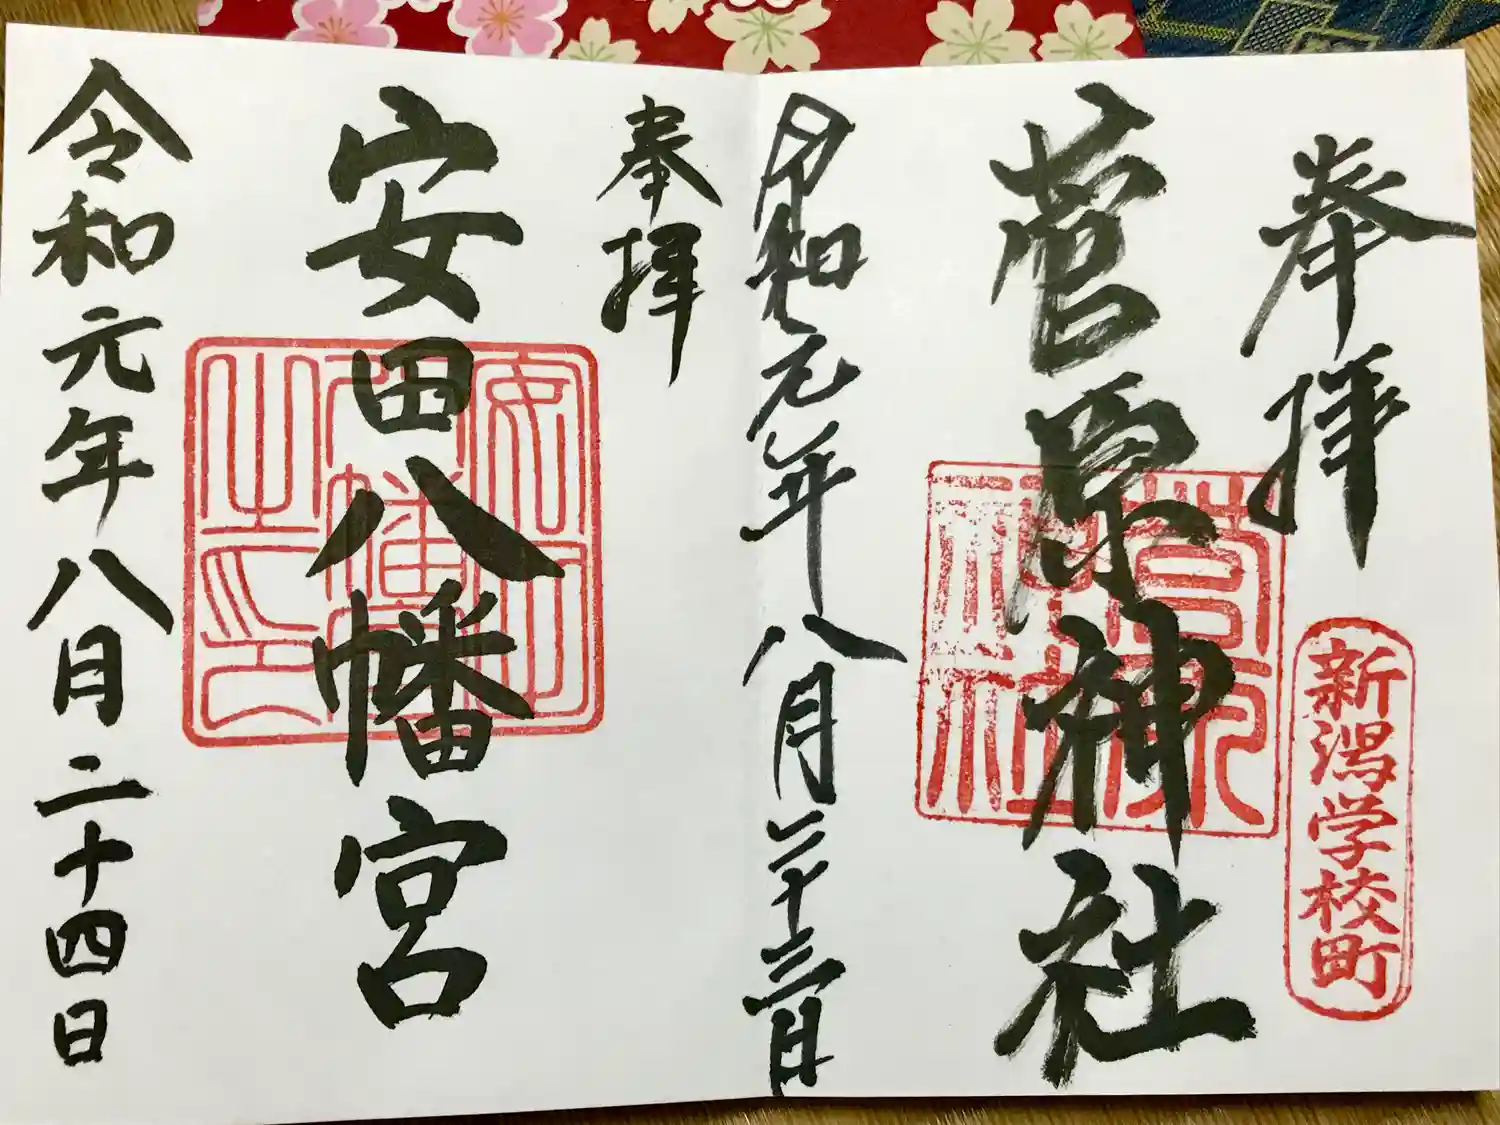 奉拝
新潟学校町
菅原神社
菅原神社
令和元年八月二十三日
奉拝
安田八幡宮
安田八幡之印
令和元年八月二十四日